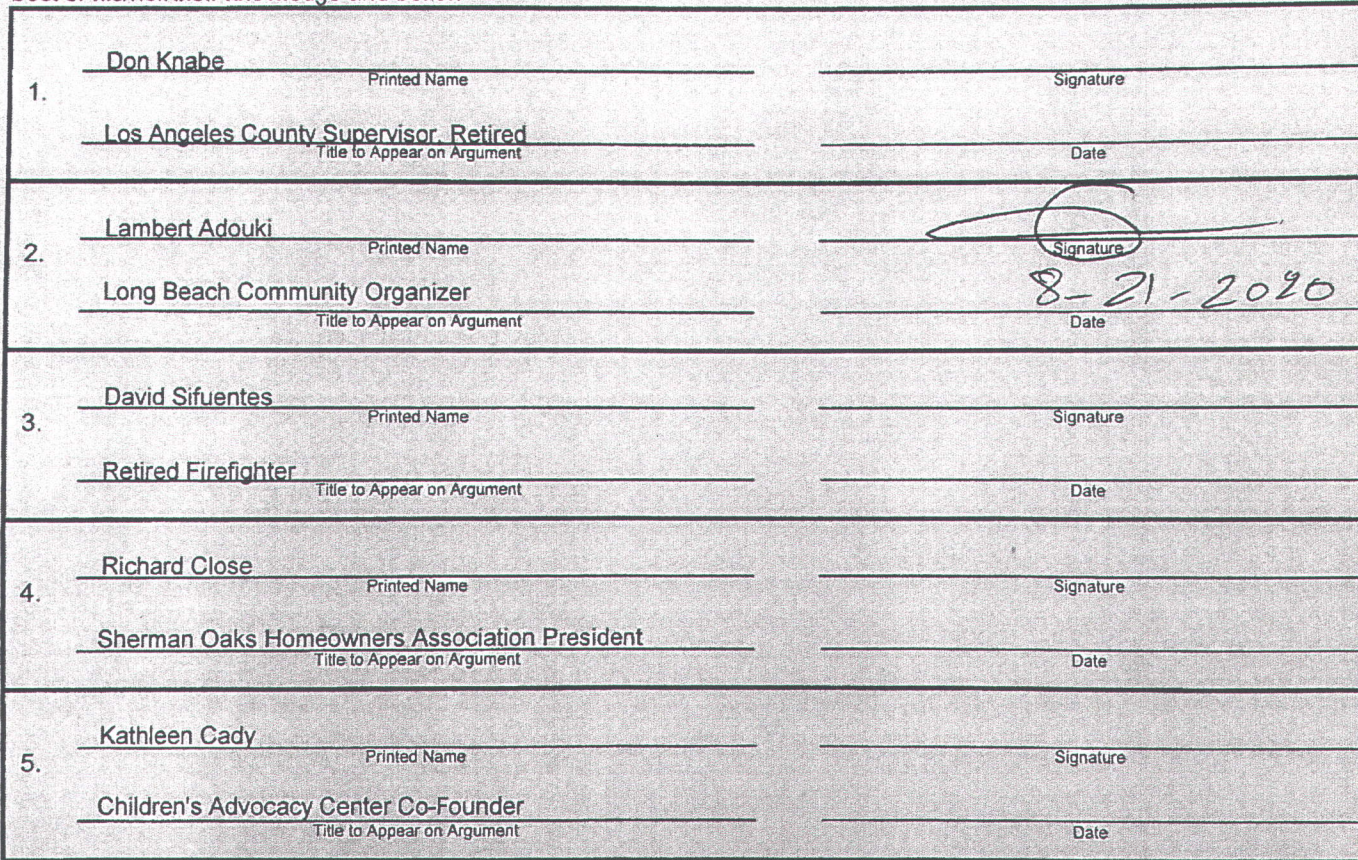 Don Knabe
Printed Name Signature
1.
Los Angeles County Supervisor, Retired
Title to Appear on Argument Date
Lambert Adouki
Printed Name Signature
2.
Long Beach Community Organizer 8-21-2020
Title to Appear on Argument Date
David Sifuentes
Printed Name Signature
3.
Retired Firefighter
Title to Appear on Argument Date
Richard Close
Printed Name Signature
4.
Sherman Oaks Homeowners Association President
Title to Appear on Argument Date
Kathleen Cady
Printed Name Signature
5.
Children's Advocacy Center Co-Founder
Title to Appear on Argument Date